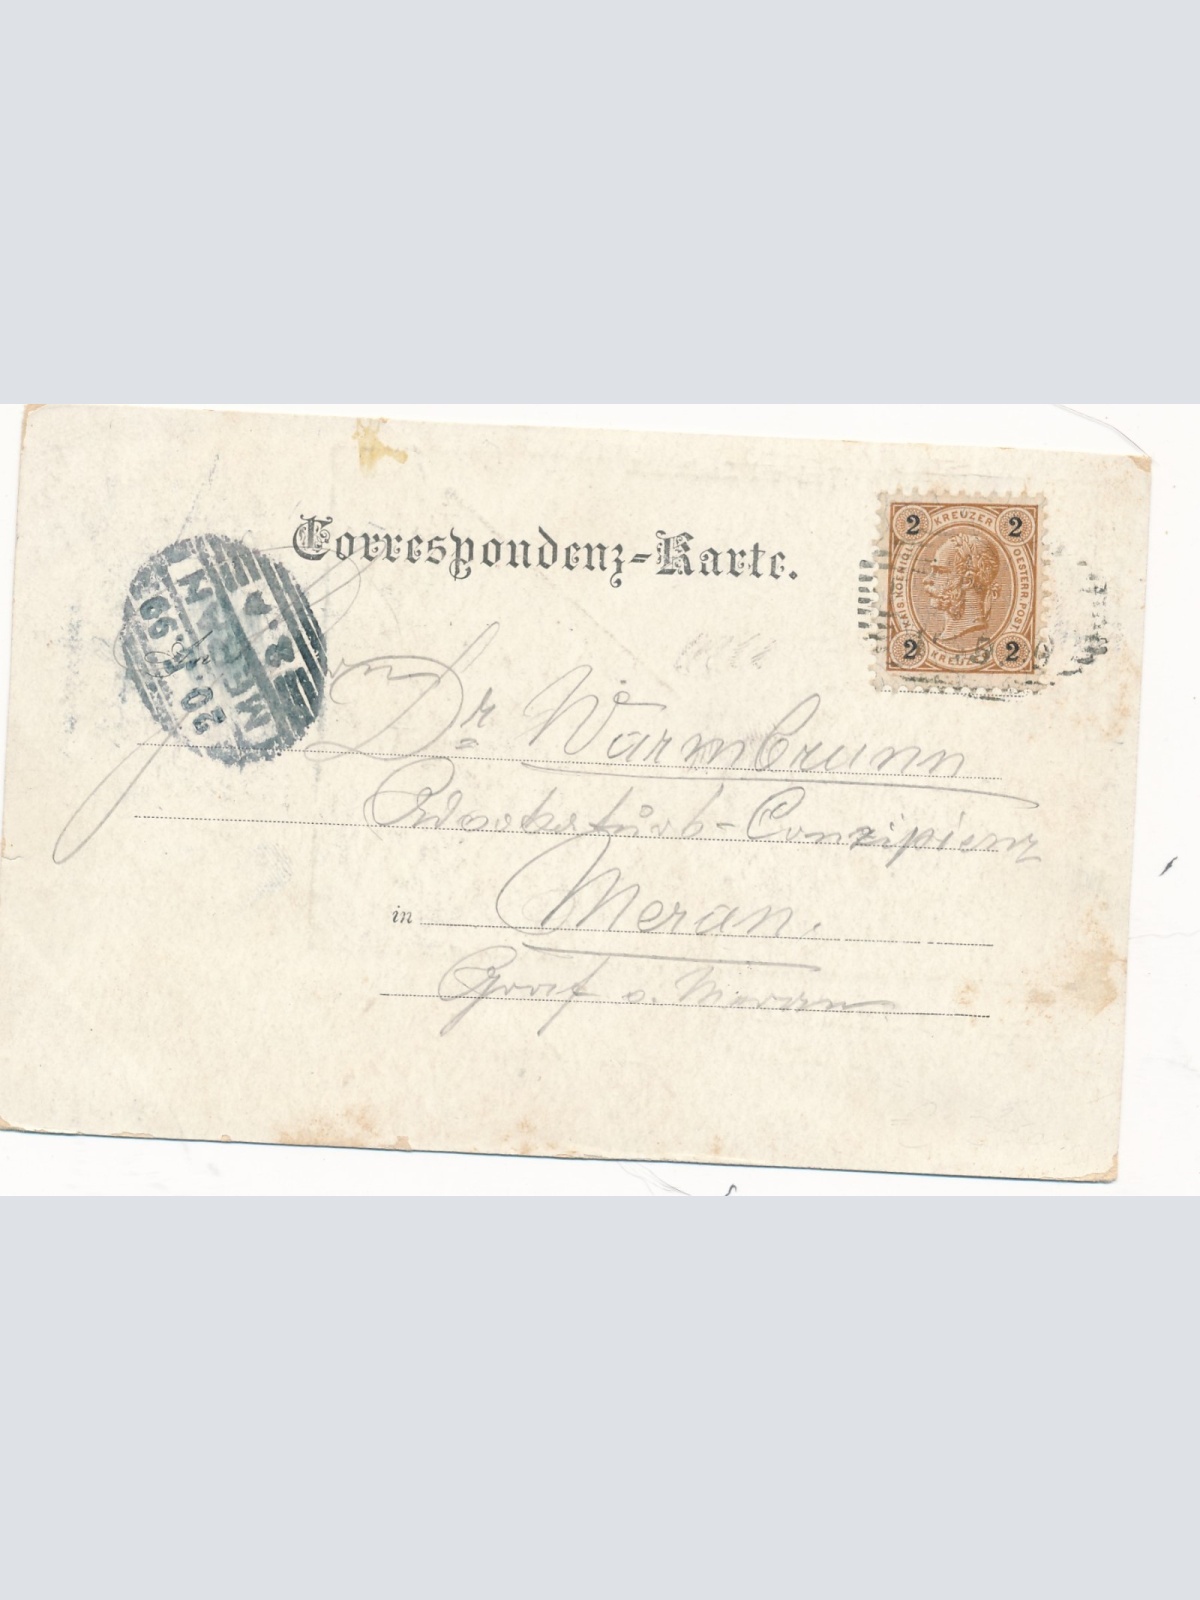 Correspondenz-Karte.
2 KREUZER 2
KAIS. KOENIGL. OESTERR. POST
2 KREUZER 2
5
MERAN
20.
99
8.V
Herrn
Dr. Warmbrunn
Advokaturs-Conzipient
in Meran.